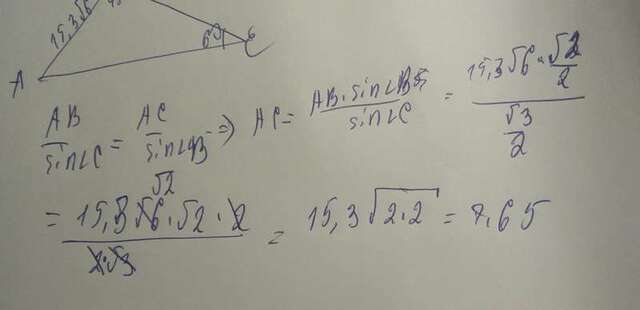 15,3√6 45
60 C
A
AB/sin∠C = AC/sin∠B ⇒ AC = AB·sin∠B/sin∠C = (15,3√6·√2/2)/(√3/2)
√2
= 15,3√6·√2·2/2·√3 = 15,3√2·2 = 7,65